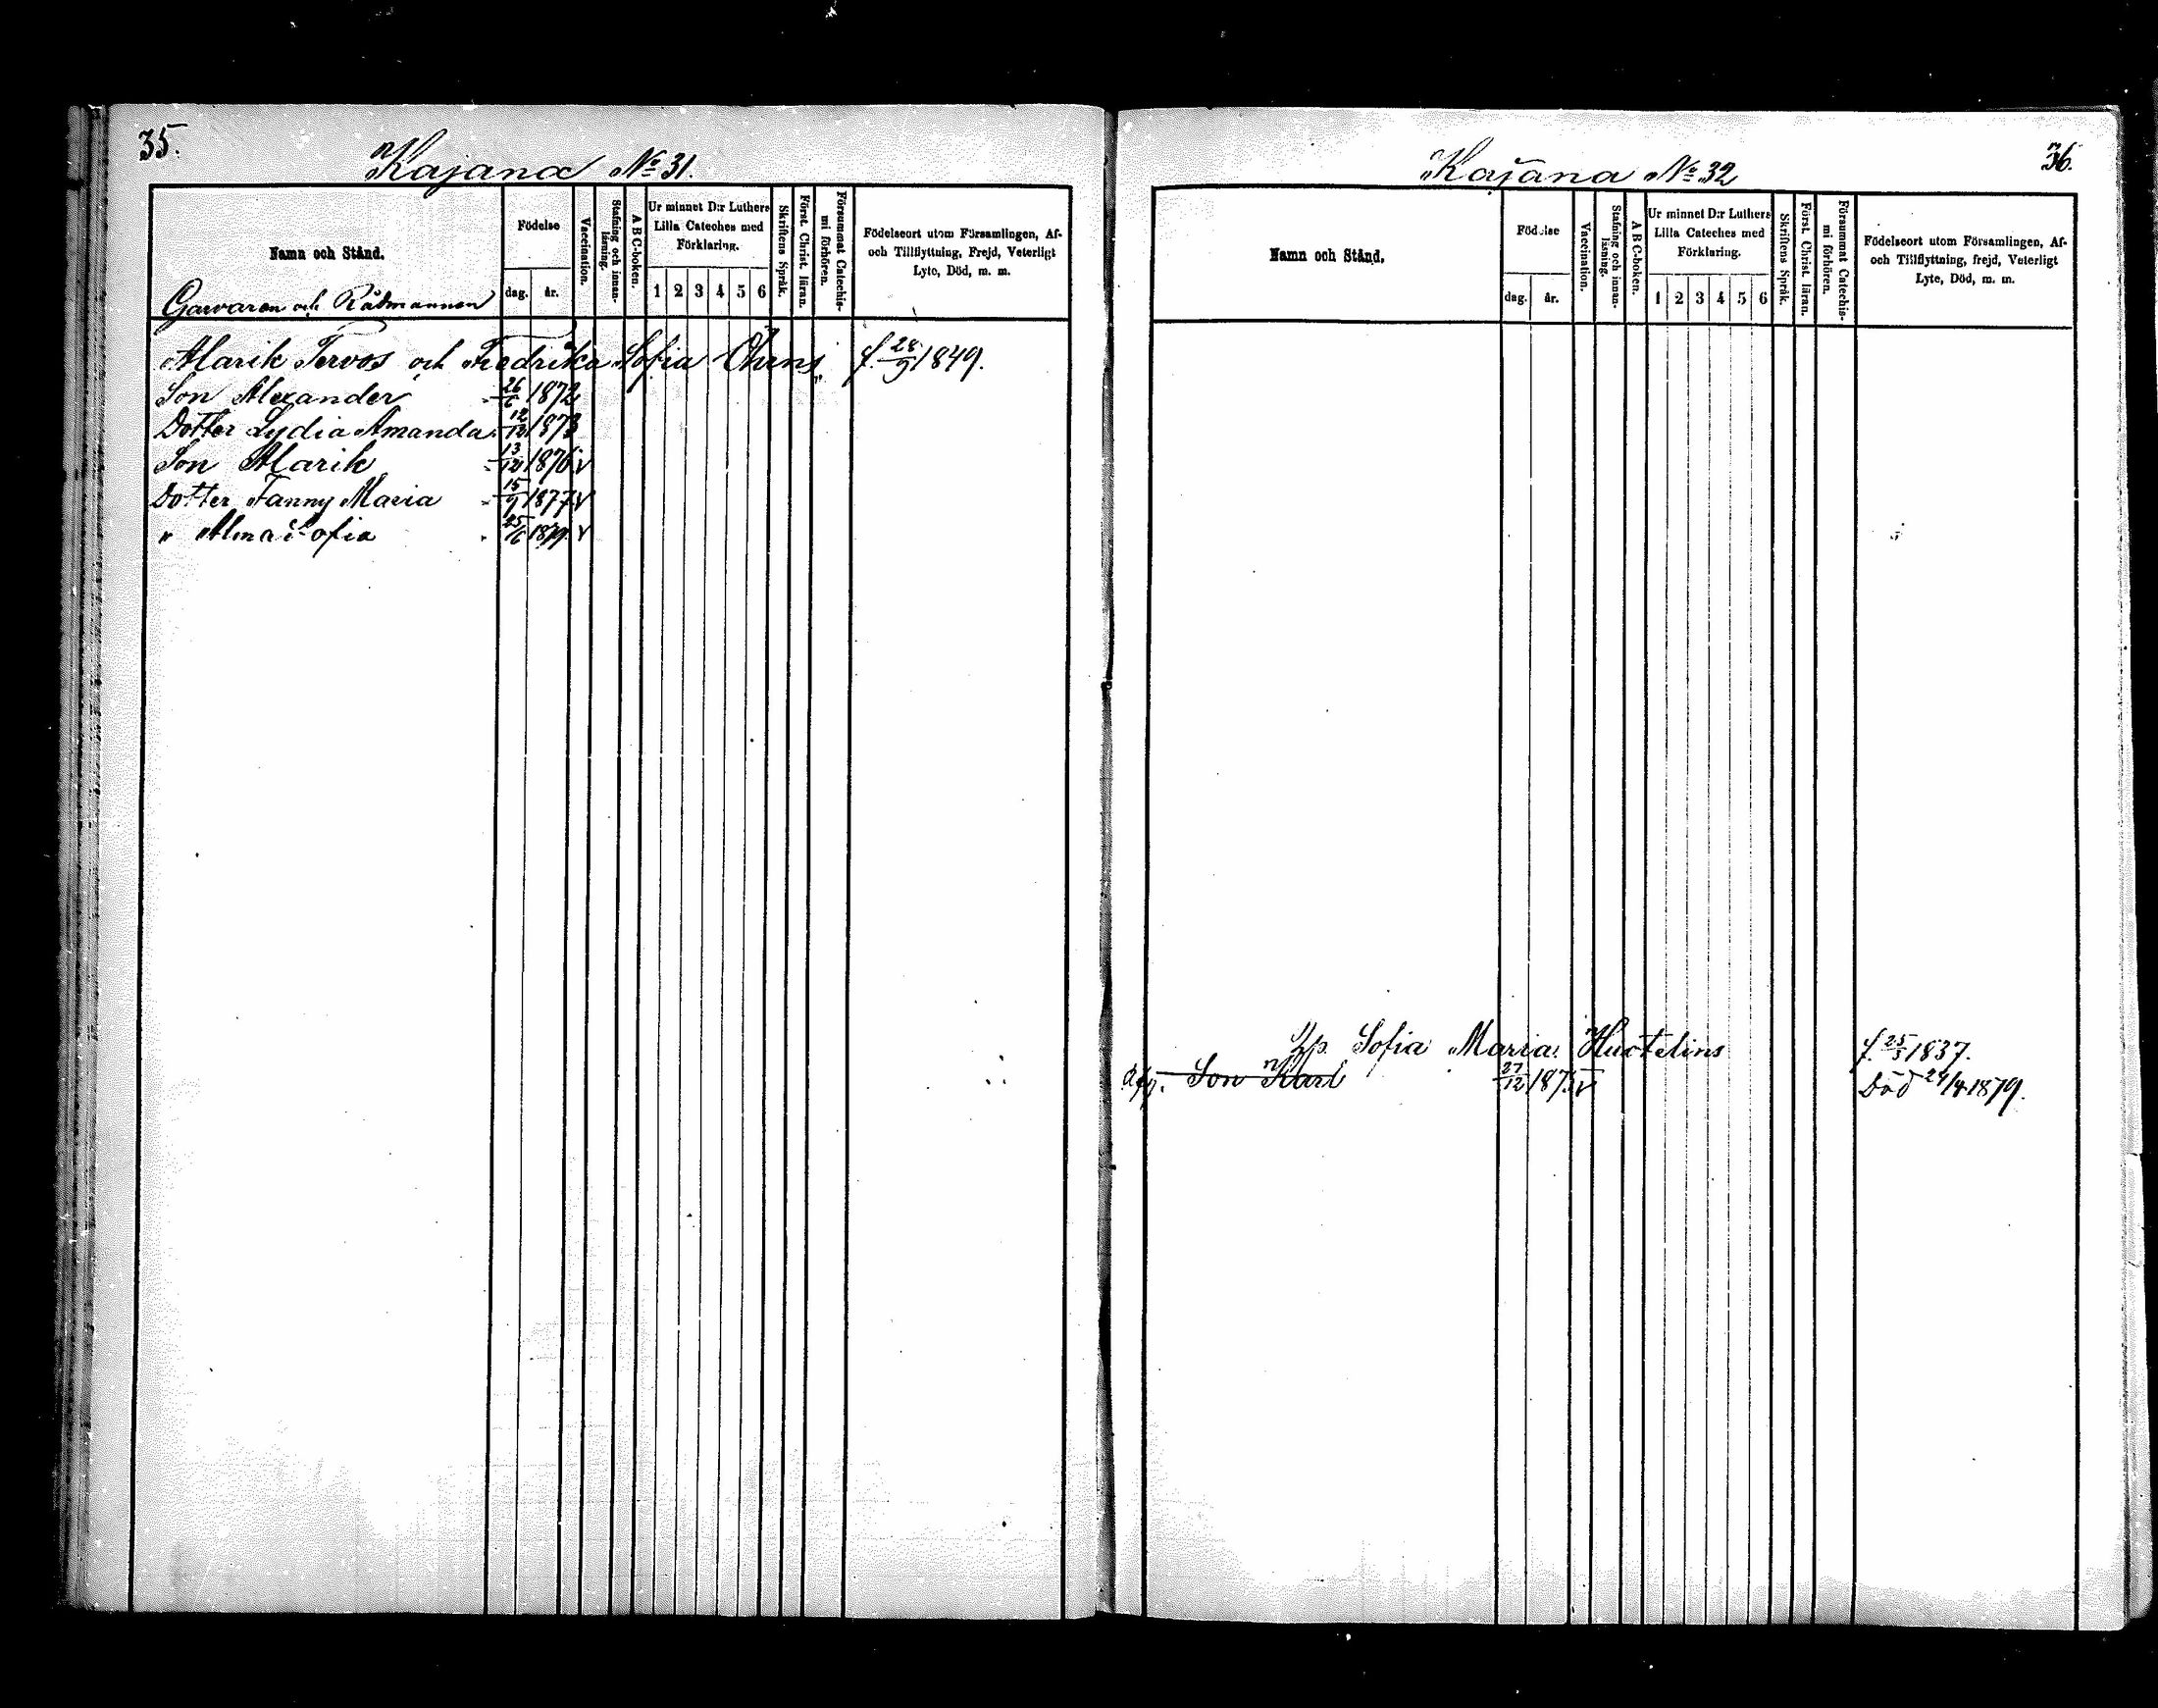 35.
Kajana No 31.
Namn och Stånd.
Födelse
dag.
år.
Vaccination.
Stafning och innan-
läsning.
A B C-boken.
Ur minnet D:r Luthers
Lilla Cateches med
Förklaring.
1 2 3 4 5 6
Skriftens Språk.
Först. Christ. läran.
Försummat Catechis-
mi förhören.
Födelseort utom Församlingen, Af-
och Tillflyttning, Frejd, Veterligt
Lyte, Död, m. m.
Garvaren och Rådmannen
Alarik Tervos och Fredrika Sofia Öhrns f. 28/9 1849.
Son Alexander 26/6 1872
Dotter Lydia Amanda 12/12 1873
Son Alarik 13/12 1876 v
Dotter Fanny Maria 15/9 1877 v
" Alma Sofia 25/6 1879. v
36.
Kajana No 32
Namn och Stånd.
Födelse
dag.
år.
Vaccination.
Stafning och innan-
läsning.
A B C-boken.
Ur minnet D:r Luthers
Lilla Cateches med
Förklaring.
1 2 3 4 5 6
Skriftens Språk.
Först. Christ. läran.
Försummat Catechis-
mi förhören.
Födelseort utom Församlingen, Af-
och Tillflyttning, frejd, Veterligt
Lyte, Död, m. m.
Sofia Maria Huotelins f. 25/3 1837.
Son Karl 27/12 1875 v Död 24/4 1879.